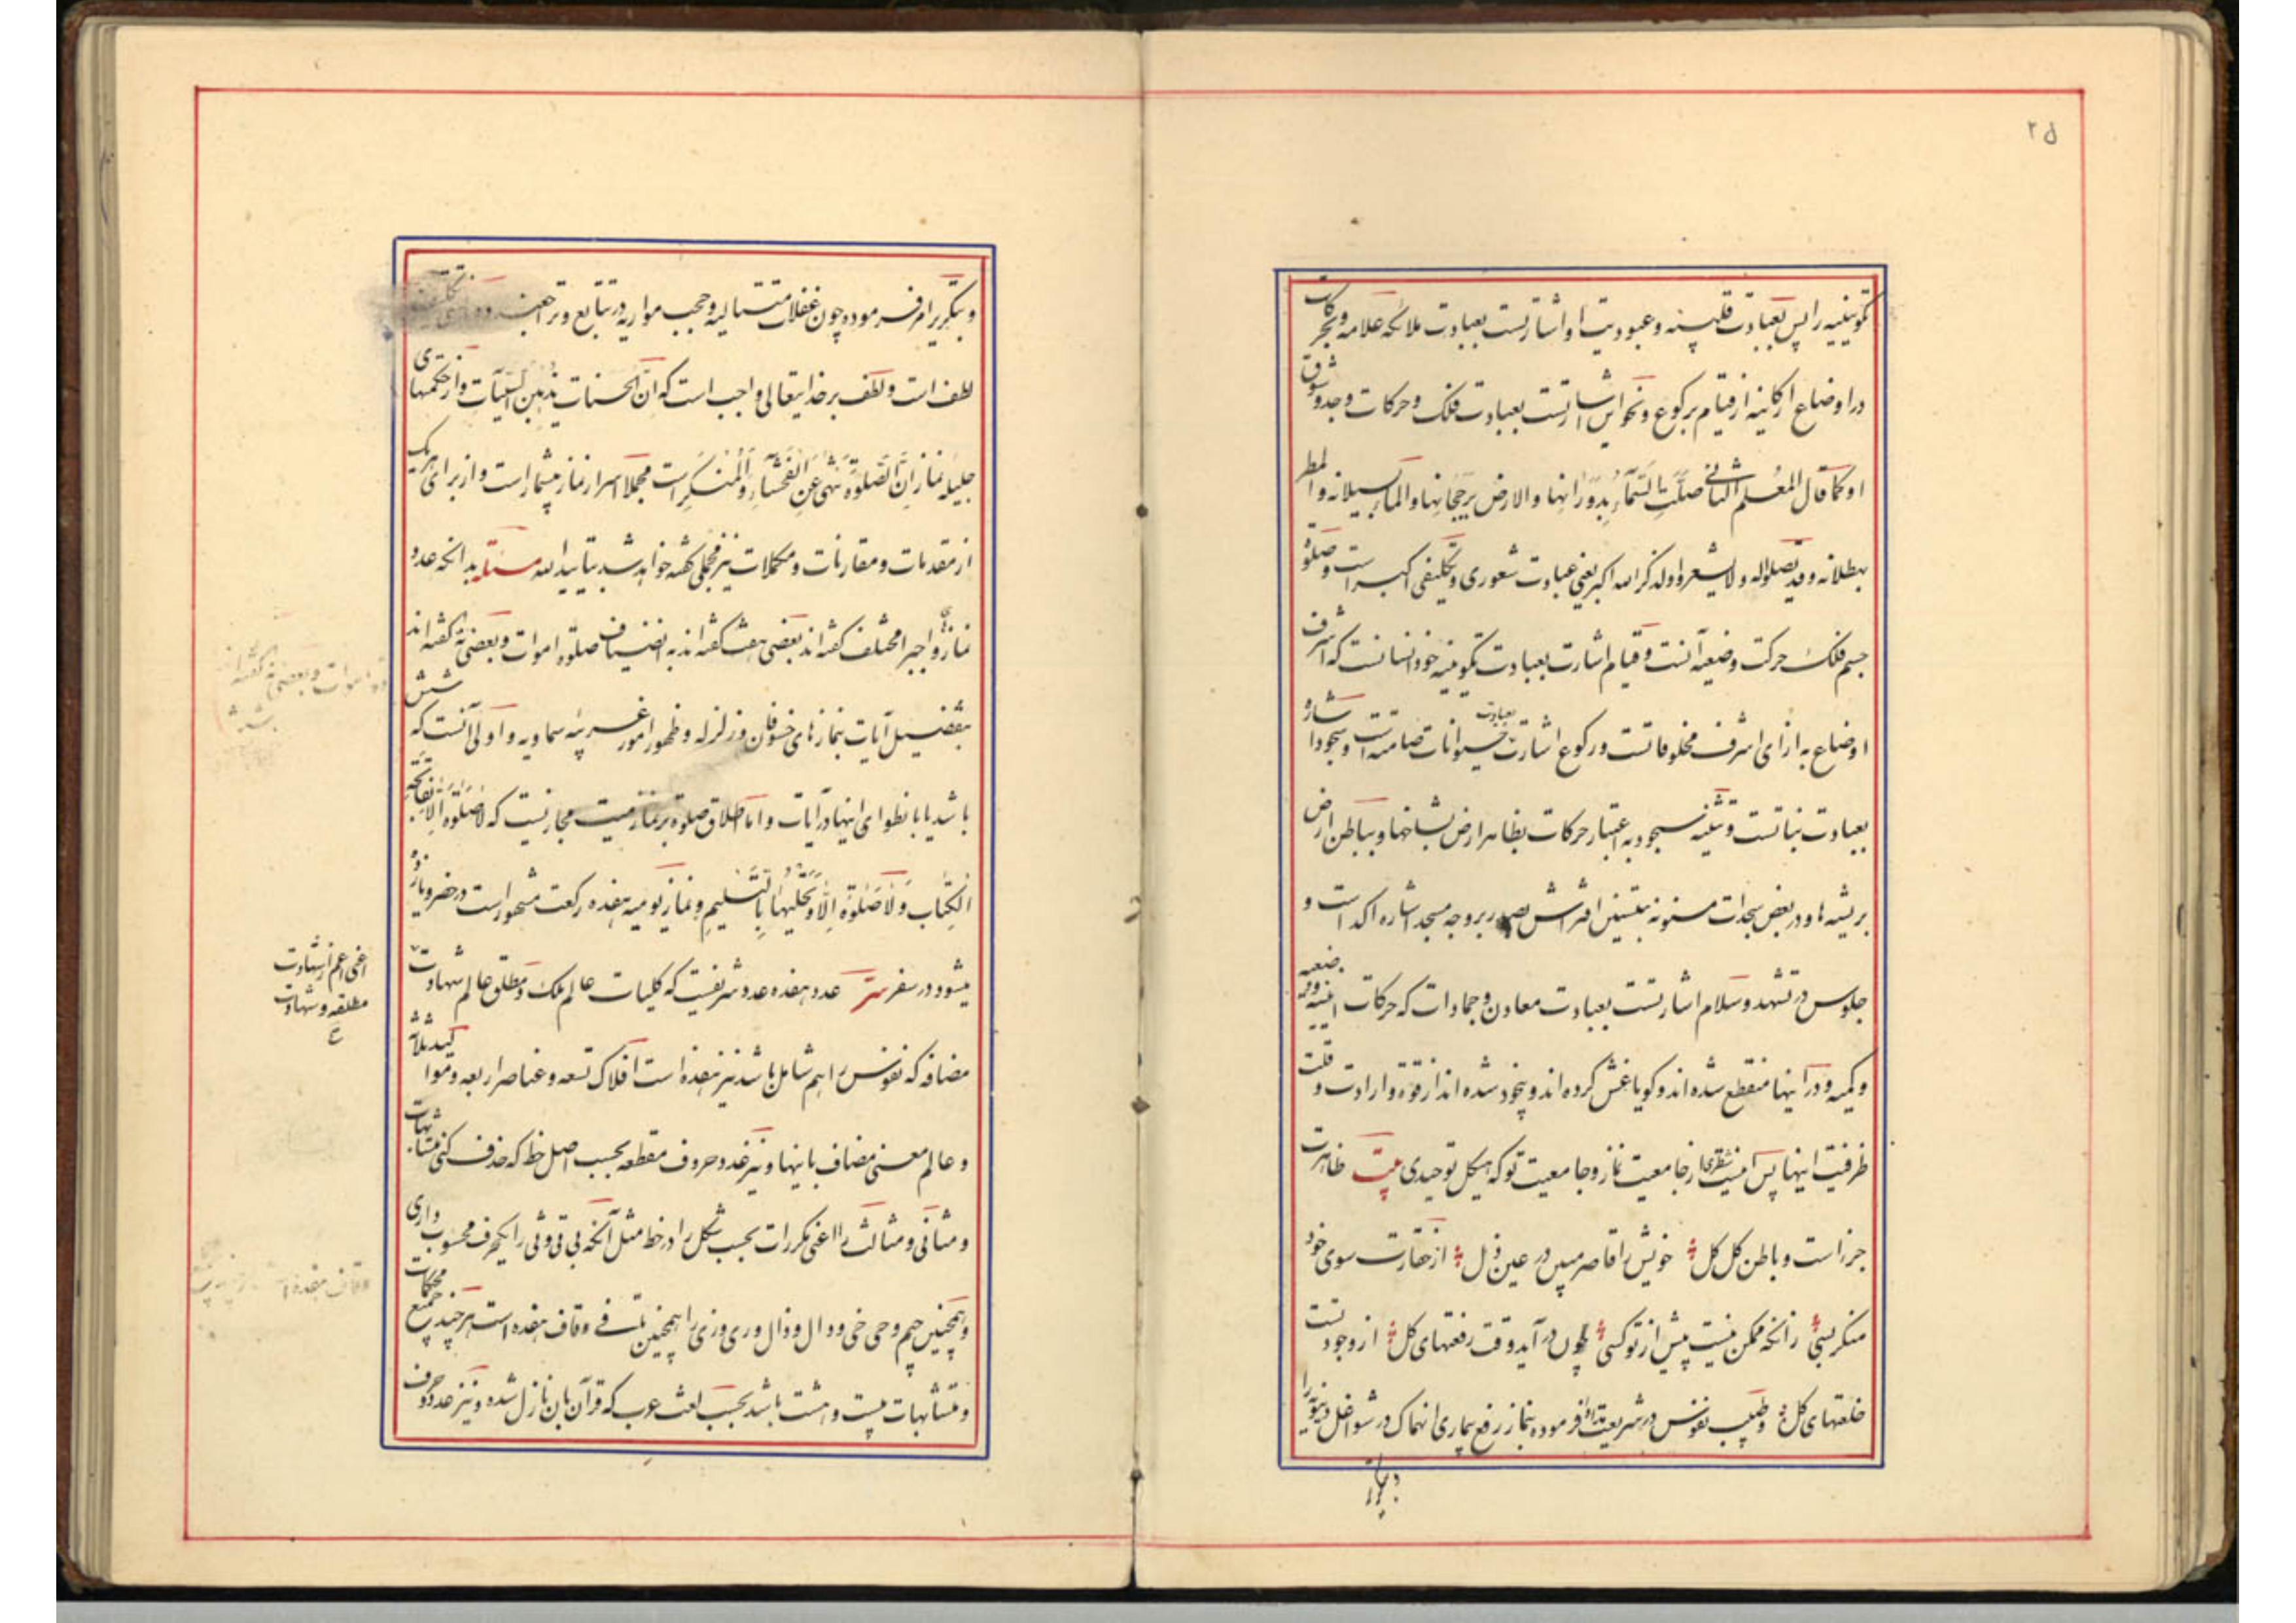 ۲۵
تکوینیه را پس بعبادت قلبیه و عبودیت او اشارتست بعبادت ملائکه علامه و بحرکات
در اوضاع ارکانیه از قیام برکوع و نحو این اشارتست بعبادت فلک و حرکات وجد و شوق
او کما قال المعلم الثانی صلّت السّمآء بدورانها و الارض برجحانها و الماء بسیلانه و المطر
بهطلانه و قد یصلوا له و لا یشعروا و لذکر الله اکبر یعنی عبادت شعوری و تکلیفی اکبر است و صلوة
جسم فلک حرکت وضعیه آنست و قیام اشارت بعبادت تکوینیه خود انسانست که اشرف
اوضاع به ازای اشرف مخلوقاتست و رکوع اشارت بعبادت حیوانات صامته است و سجود اشاره
بعبادت نباتست و تثنیه سجود به اعتبار حرکات بظاهر ارض بشاخها و بباطن ارض
بریشه ها و در بعض سجدات مسنونه بتسنین افتراش بصدر بروجه مسجد اشاره اکد است و
جلوس در تشهد و سلام اشارتست بعبادت معادن و جمادات که حرکات اینیه وضعیه
و کمیه و در اینها منقطع شده اند و گویا غش کرده اند و بیخود شده اند از قوة و ارادت و قلت
ظرفیت اینها پس اینست نظری از جامعیت نماز و جامعیت تو که هیکل توحیدی بیت ظاهرت
جزء است و باطن کل کل خویش را قاصر مبین در عین ذل از حقارت سوی خود
منکر بسی زانکه ممکن نیست پیش از تو کسی چون در آید وقت رفعتهای کل از وجود تست
خلعتهای کل و طبیب نفوس در شریعت تداوا فرموده بنماز رفع بیماری انهماک در شواغل دنیویه را
و بتکریر
و بتکریر امر فرموده چون غفلات متتالیه و حجب مواریه در تتابع و تراحمند
لطف است و لطف بر خدایتعالی واجب است که انّ الحسنات یذهبن السّیّآت و از حکمهای
جلیله نماز انّ الصّلوة تنهی عن الفحشاء و المنکر است مجملا اسرار نماز بیشمار است و از برای هریک
از مقدمات و مقارنات و مکملات نیز مجملی گفته خواهد شد بتایید الله مسئله بدانکه عدد
نمازهای واجبه را مختلف گفته اند بعضی هفت گفته اند به انضیاف صلوة اموات و بعضی نه گفته اند
بتفصیل آیات بنمازهای خسوفان و زلزله و ظهور امور غریبه سماویه و اولی آنست که شش
باشد یا بانطوای اینها در آیات و اما اطلاق صلوة بر نماز میت مجازیست که لا صلوة الا بفاتحة
الکتاب و لا صلوة الا و تحلیلها بالتسلیم و نماز یومیه هفده رکعت مشهور است در حضر و یازده
میشود در سفر سرّ عدد هفده عدد شریفیست که کلیات عالم ملک و مطلق عالم شهادت
مضافه که نفوس را هم شامل باشد نیز هفده است افلاک تسعه و عناصر اربعه و موالید ثلاثه
و عالم معنی مضاف باینها و نیز عدد حروف مقطعه بحسب اصل خط که حذف کنی متشابهات
و مثانی و مثالث را اعنی مکررات بحسب شکل را در خط مثل آنکه بی تی و ثی را یکحرف محسوب داری
و همچنین جیم و حی خی و دال و ذال و ری و زی را همچنین تا فے و قاف هفده است هر چند جمیع محکمات
و متشابهات بیست و هشت باشد بحسب لغت عرب که قرآن بان نازل شده و نیز عدد حروف
و بعضی نه گفته اند
اعنی اعم از شهادت
مطلقه و شهادت